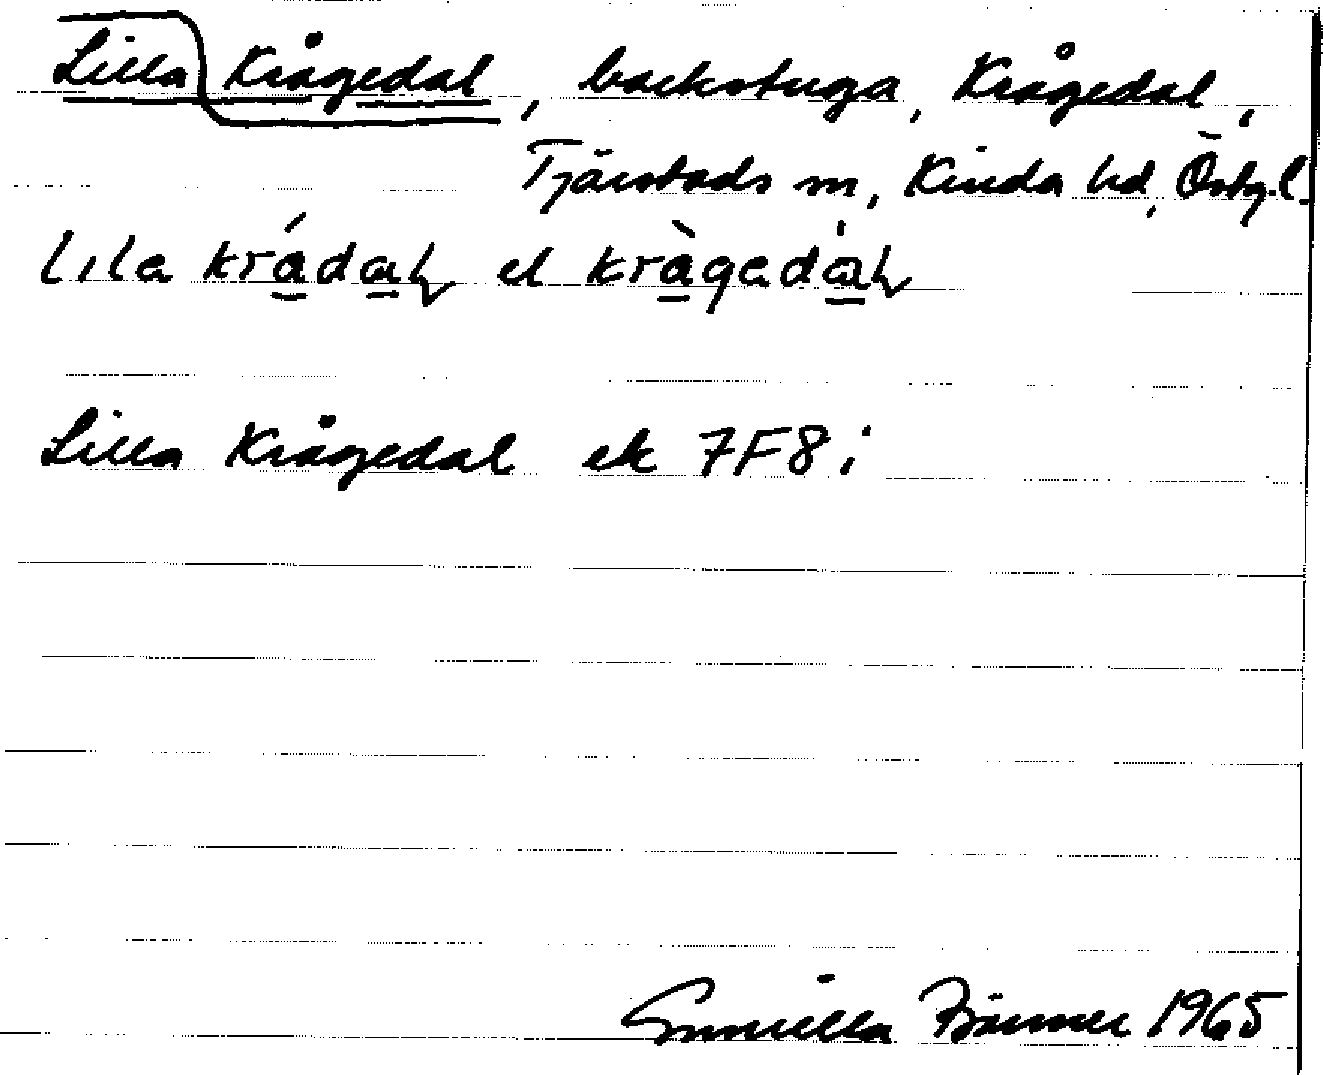 Lilla Krågedal, backstuga, Krågedal,
Tjärstads sn, Kinda hd, Östg.l.
lila krádaḷ el kràgadàḷ
Lilla Krågedal ek 7F8i
Gunilla 1965